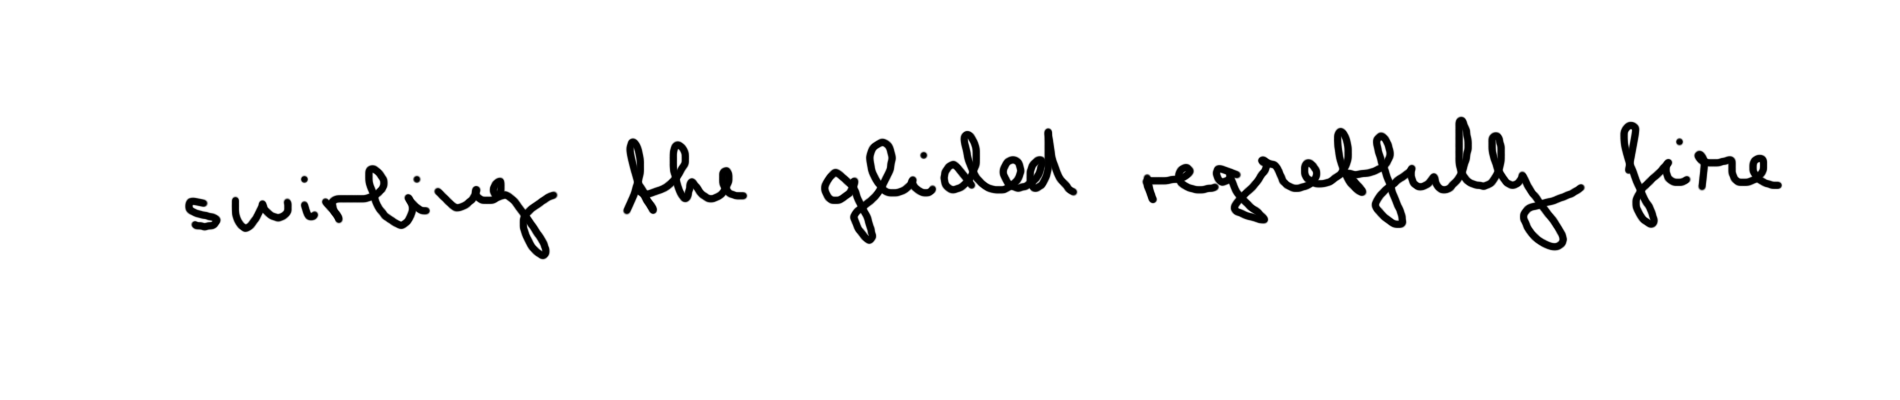 swirling the glided regretfully fire